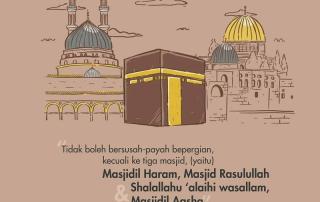 “Tidak boleh bersusah-payah bepergian,
kecuali ke tiga masjid, (yaitu)
Masjidil Haram, Masjid Rasulullah
Shalallahu ‘alaihi wasallam,
& Masjidil Aqsha”